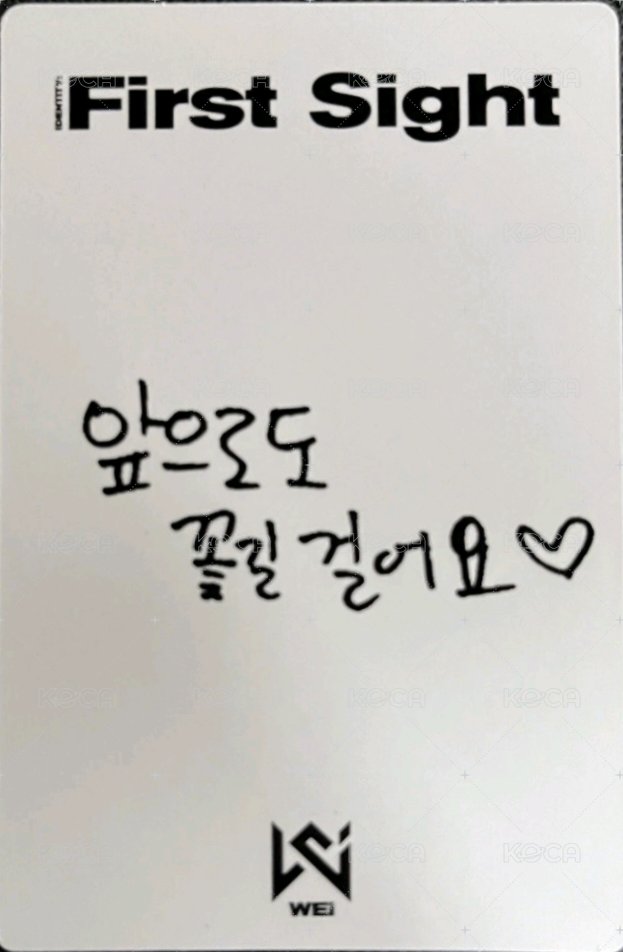 IDENTITY:
First Sight
앞으로도
꽃길 걸어요♡
WEi
KOCA